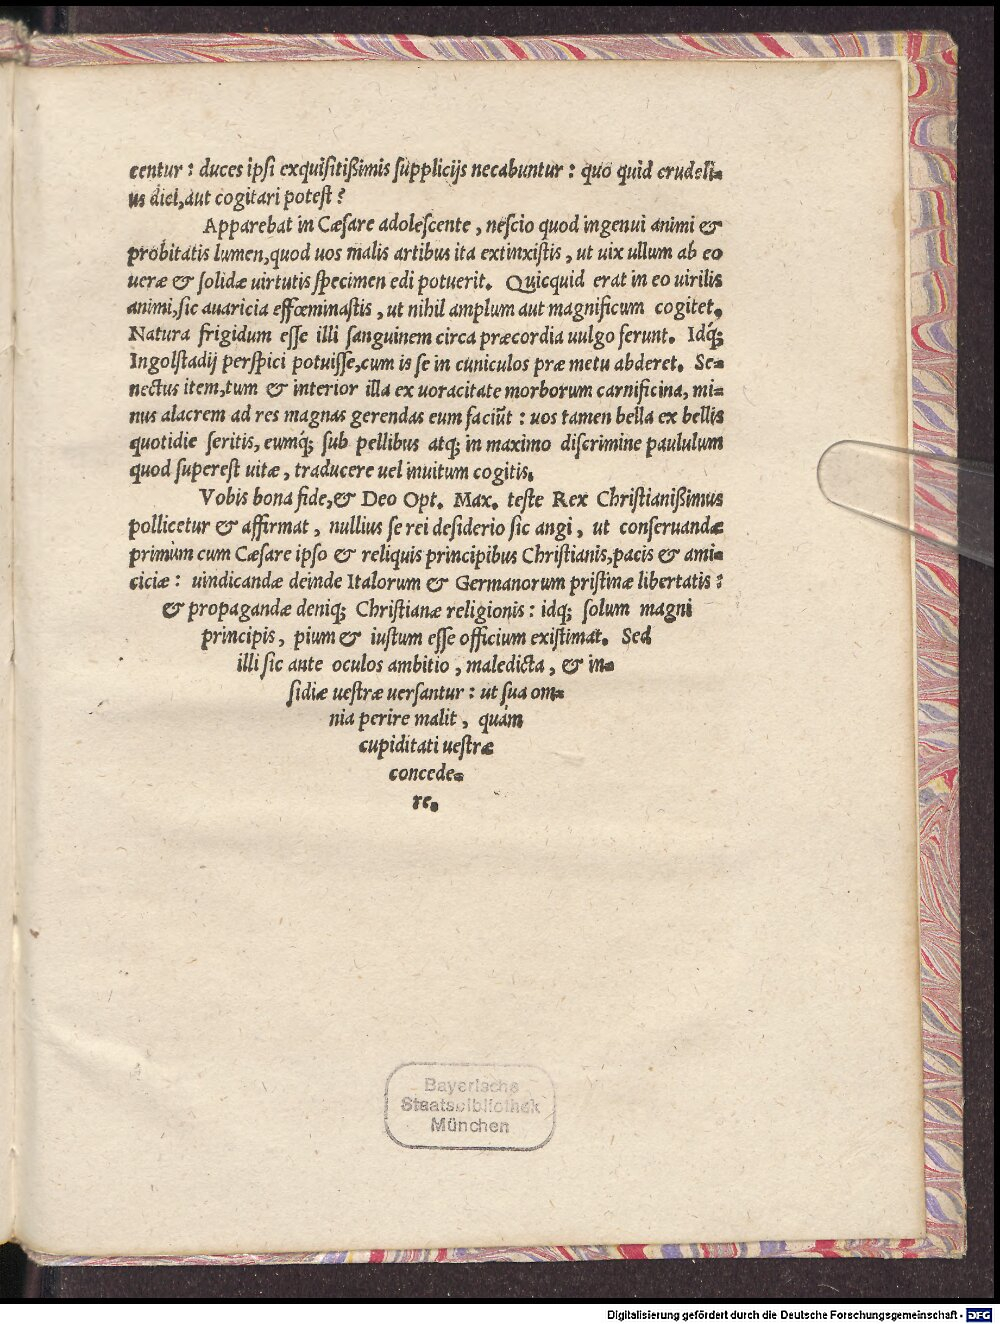 centur : duces ipsi exquisitißimis supplicijs necabuntur : quo quid crudeli=
us dici, aut cogitari potest ?
Apparebat in Cæsare adolescente , nescio quod ingenui animi &
probitatis lumen, quod uos malis artibus ita extinxistis , ut uix ullum ab eo
ueræ & solidæ uirtutis specimen edi potuerit. Quicquid erat in eo uirilis
animi, sic auaricia effœminastis , ut nihil amplum aut magnificum cogitet.
Natura frigidum esse illi sanguinem circa præcordia uulgo ferunt. Idq́;
Ingolstadij perspici potuisse, cum is se in cuniculos præ metu abderet. Se=
nectus item, tum & interior illa ex uoracitate morborum carnificina, mi=
nus alacrem ad res magnas gerendas eum faciũt : uos tamen bella ex bellis
quotidie seritis, eumq́; sub pellibus atq; in maximo discrimine paululum
quod superest uitæ , traducere uel inuitum cogitis.
Vobis bona fide, & Deo Opt. Max. teste Rex Christianißimus
pollicetur & affirmat , nullius se rei desiderio sic angi , ut conseruandæ
primùm cum Cæsare ipso & reliquis principibus Christianis, pacis & ami=
ciciæ : uindicandæ deinde Italorum & Germanorum pristinæ libertatis :
& propagandæ deniq; Christianæ religionis : idq; solum magni
principis , pium & iustum esse officium existimat. Sed
illi sic ante oculos ambitio , maledicta , & in=
sidiæ uestræ uersantur : ut sua om=
nia perire malit , quàm
cupiditati uestræ
concede=
re.
Bayerische
Staatsbibliothek
München
Digitalisierung gefördert durch die Deutsche Forschungsgemeinschaft - DFG